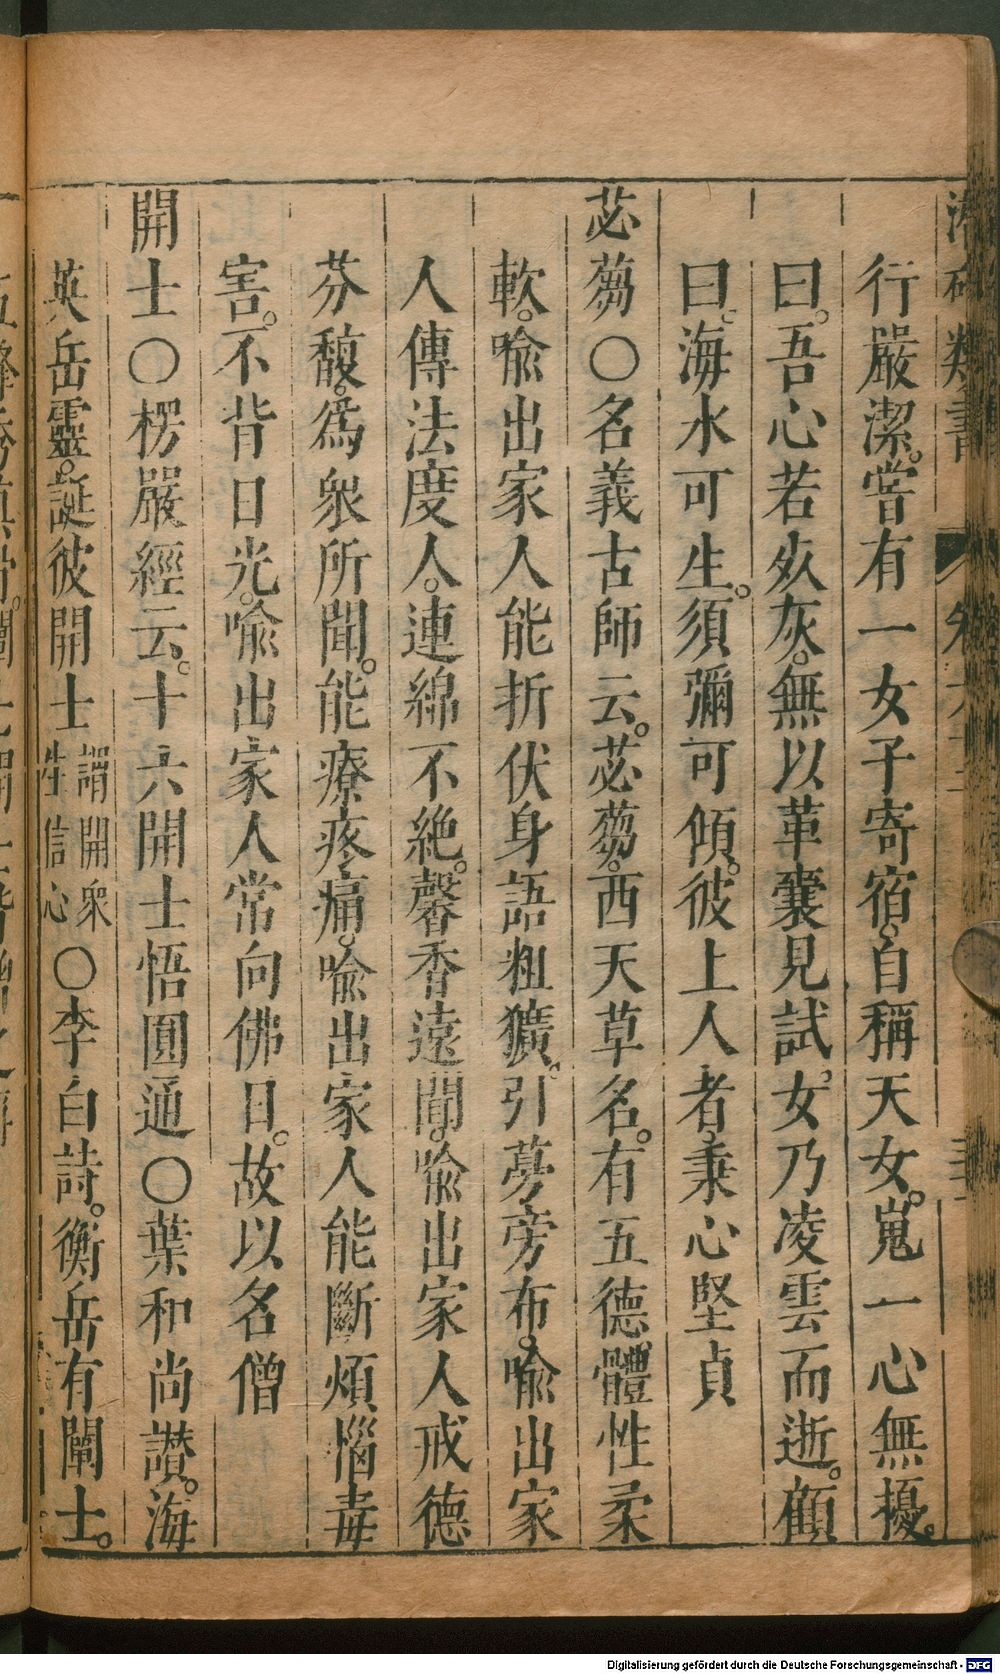 潛確類書 卷六十
行嚴潔。嘗有一女子寄宿。自稱天女。嵬一心無擾。
曰。吾心若死灰。無以革囊見試。女乃凌雲而逝。顧
曰。海水可生。須彌可傾。彼上人者。秉心堅貞
苾蒭○名義古師云。苾蒭。西天草名。有五德。體性柔
軟。喻出家人能折伏身語粗獷。引蔓旁布。喻出家
人傳法度人。連綿不絕。馨香遠聞。喻出家人戒德
芬馥。為衆所聞。能療疼痛。喻出家人能斷煩惱毒
害。不背日光。喻出家人常向佛日。故以名僧
開士○楞嚴經云。十六開士悟圓通○葉和尚讚。海
英岳靈。誕彼開士謂開衆生信心○李白詩。衡岳有闡士。
Digitalisierung gefördert durch die Deutsche Forschungsgemeinschaft - DFG